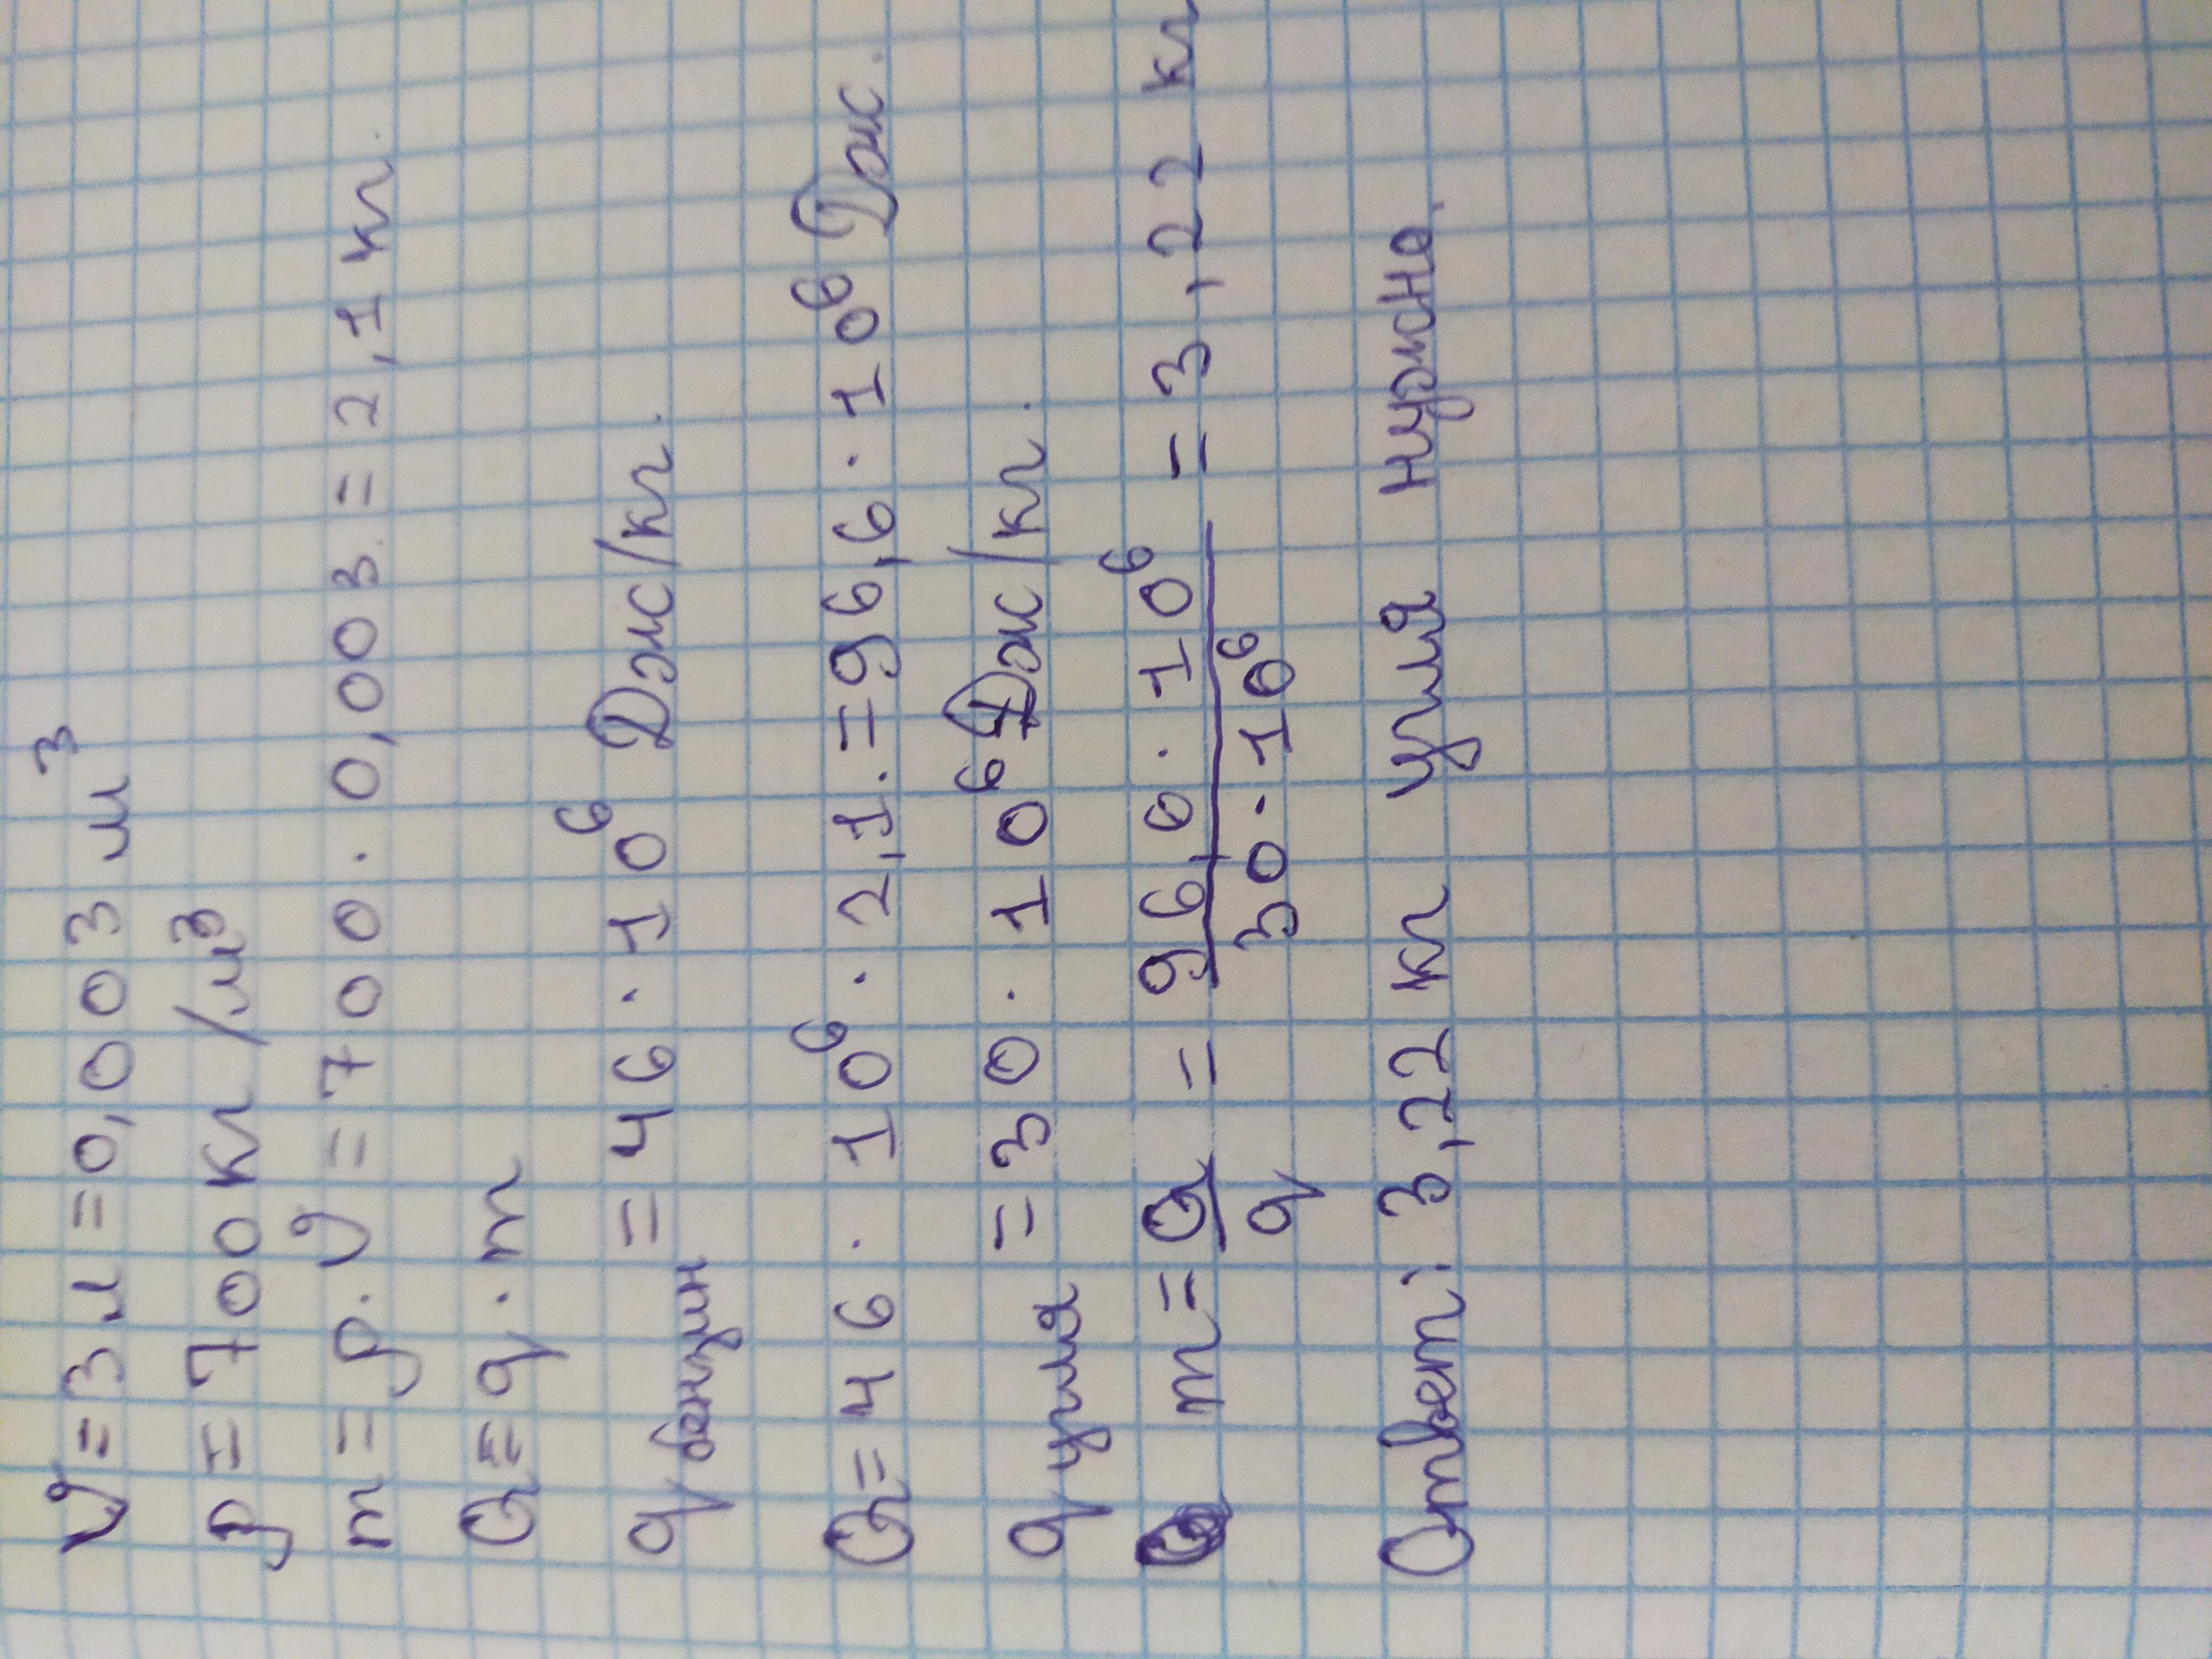 V=3л=0,003 м³
ρ=700кг/м³
m=ρ.V=700.0,003.=2,1кг.
Q=q.m
q бензин =46.10⁶ Дж/кг.
Q=46.10⁶.2,1.=96,6.10⁶Дж.
q угля =30.10⁶Дж/кг.
m=Q/q = 96,6.10⁶/30.10⁶ =3,22 кг
Ответ: 3,22 кг угля нужно.